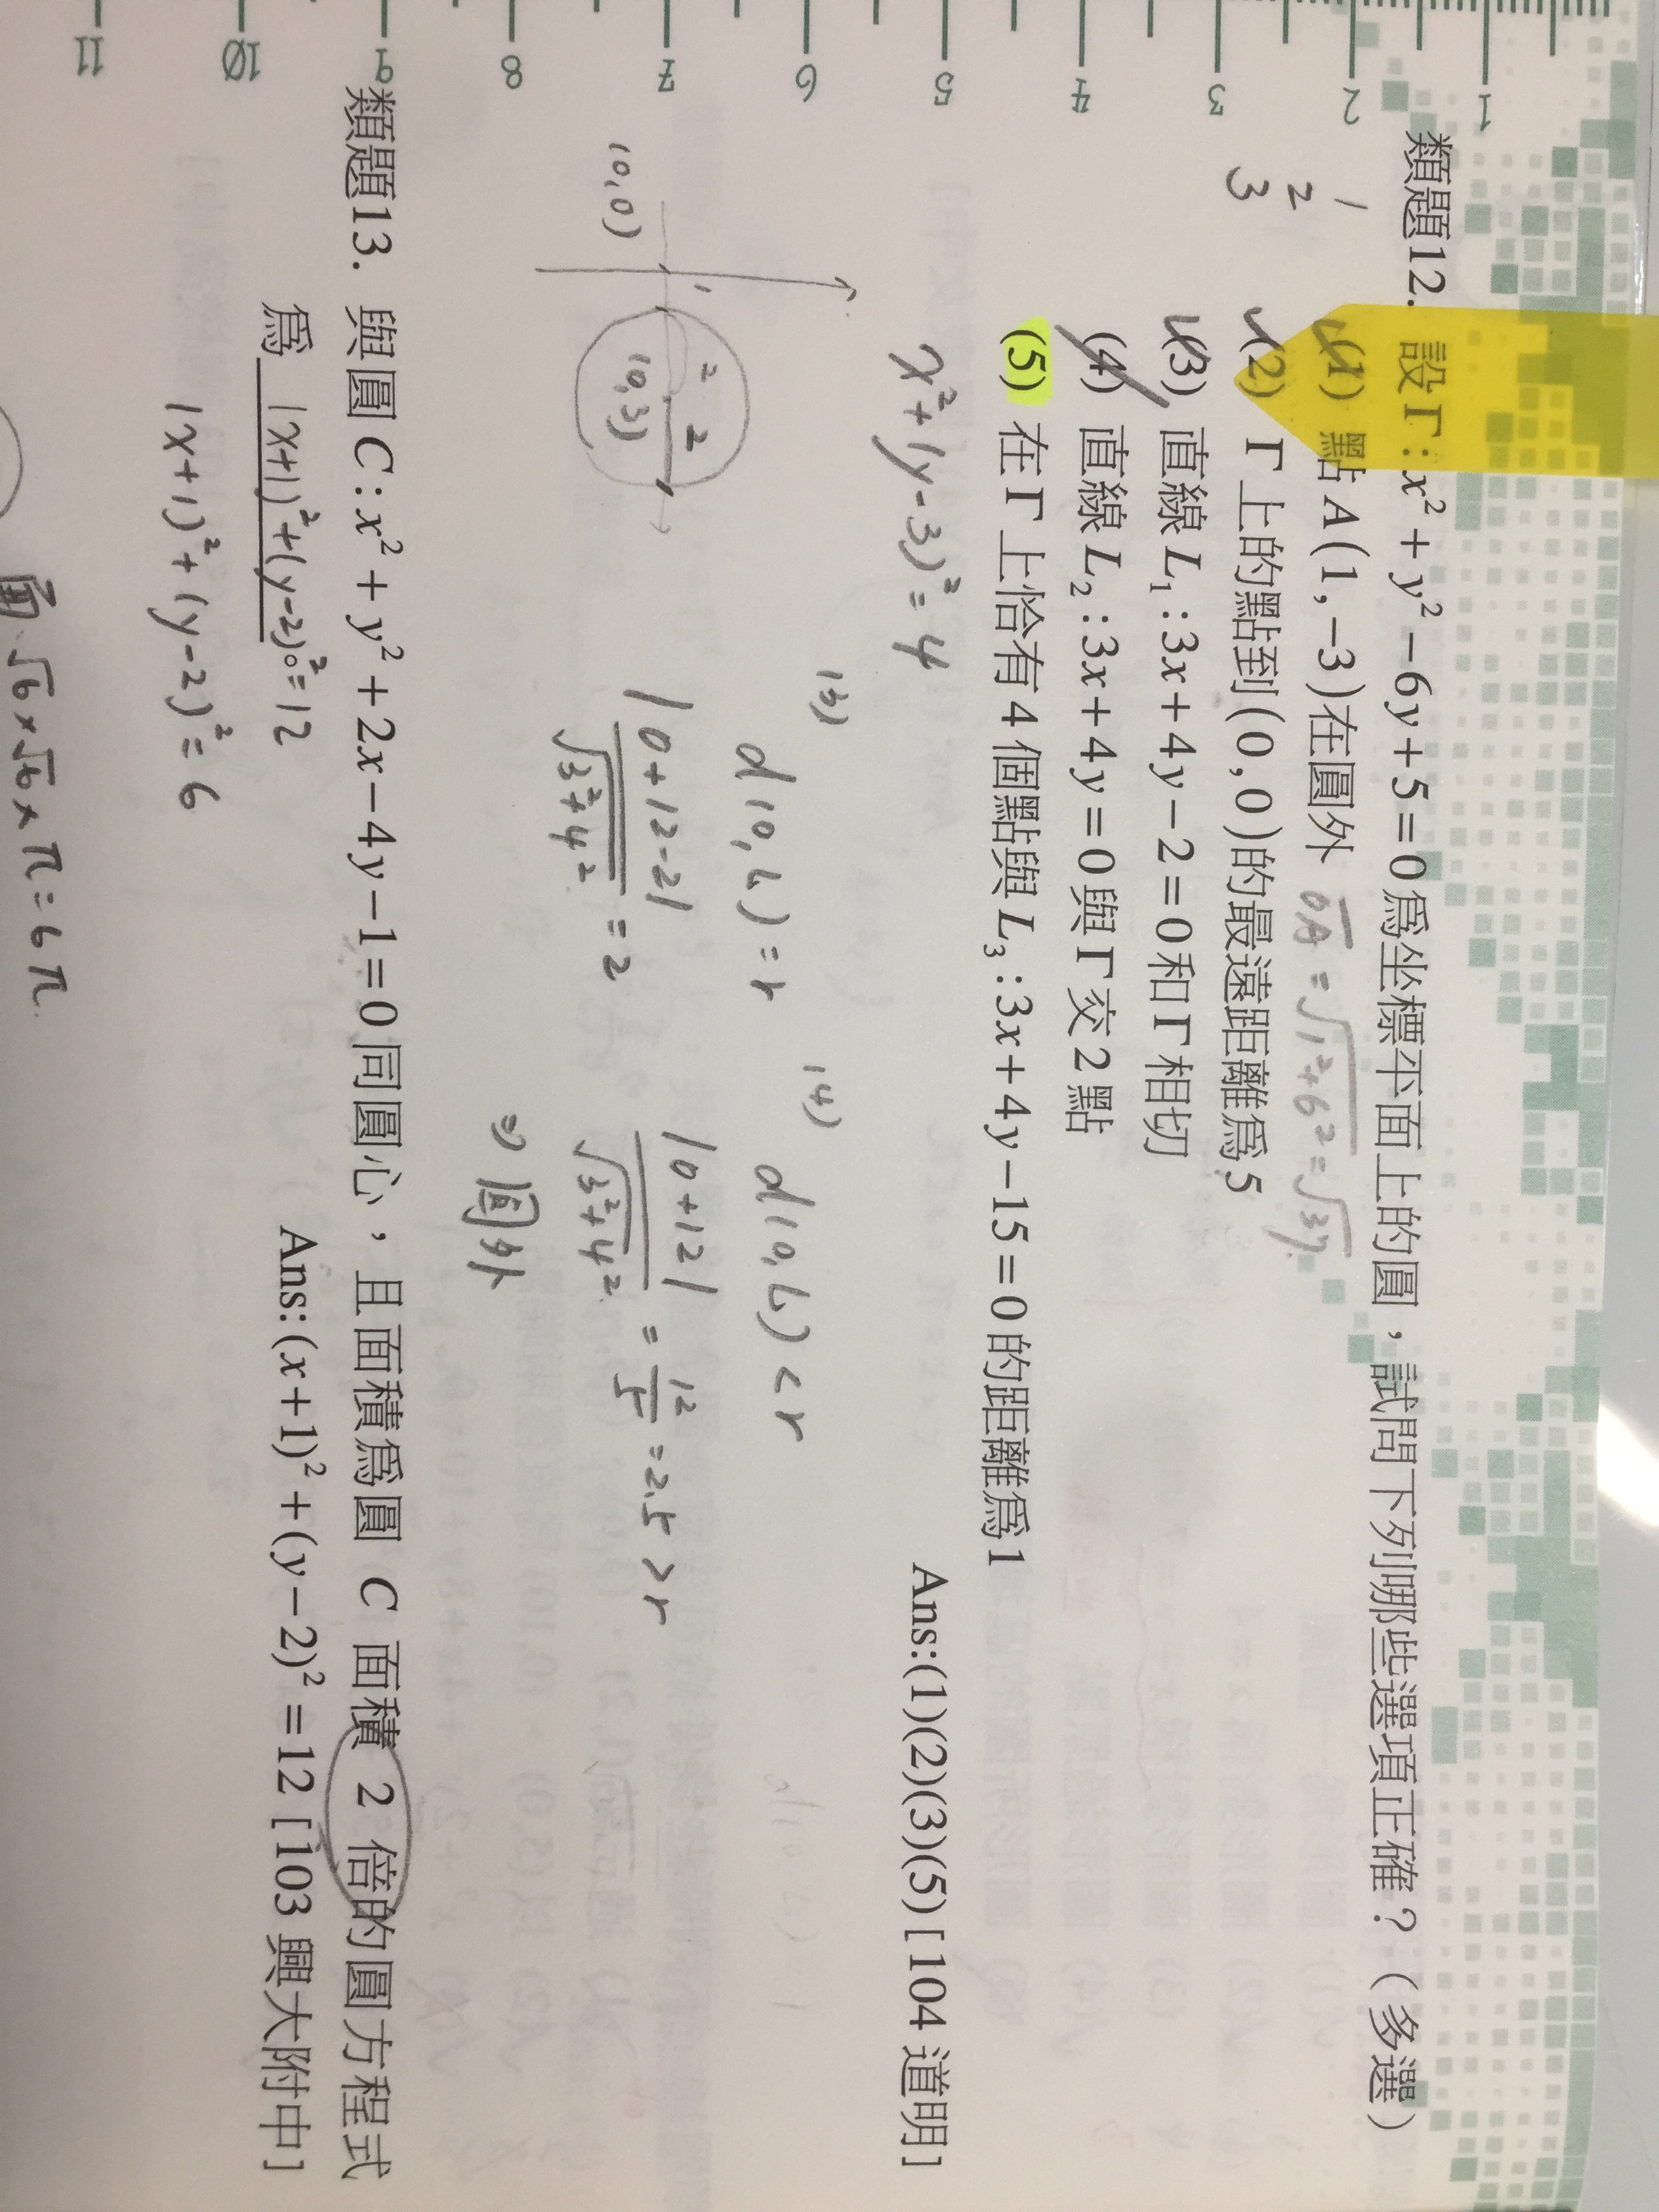 1 2 3 4 5 6 7 8 9 10 11
類題12. 設 Γ : x² + y² − 6y + 5 = 0 爲坐標平面上的圓，試問下列哪些選項正確？（多選）
1
2
3
(1) 點 A(1, −3) 在圓外 OA = √1²+6² = √37
(2) Γ 上的點到 (0, 0) 的最遠距離爲 5
(3) 直線 L₁ : 3x + 4y − 2 = 0 和 Γ 相切
(4) 直線 L₂ : 3x + 4y = 0 與 Γ 交 2 點
(5) 在 Γ 上恰有 4 個點與 L₃ : 3x + 4y − 15 = 0 的距離爲 1
Ans:(1)(2)(3)(5) [104 道明]
x² + (y−3)² = 4
(3)
d(0,L) = r
|0+12−2| / √3²+4² = 2
(4)
d(0,L) < r
|0+12| / √3²+4² = 12/5 = 2.5 > r
⇒ 圓外
1
2
2
(0,3)
(0,0)
類題13. 與圓 C : x² + y² + 2x − 4y − 1 = 0 同圓心，且面積爲圓 C 面積 2 倍的圓方程式
爲 (x+1)²+(y−2)²=12 。
Ans:(x+1)² + (y−2)² = 12 [103 興大附中]
(x+1)² + (y−2)² = 6
面 . √6 × √6 × π = 6π